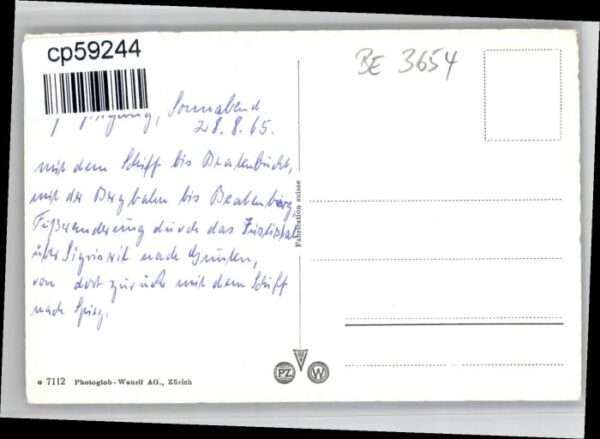 cp59244
BE 3654
Sonnabend
28.8.65.
mit dem Schiff bis Beatenbucht,
mit der Bergbahn bis Beatenberg,
Fußwanderung durch das Justistal
über Sigriswil nach Gunten,
von dort zurück mit dem Schiff
nach Spiez.
Fabrication suisse
PZ W
7112 Photoglob-Wehrli AG., Zürich